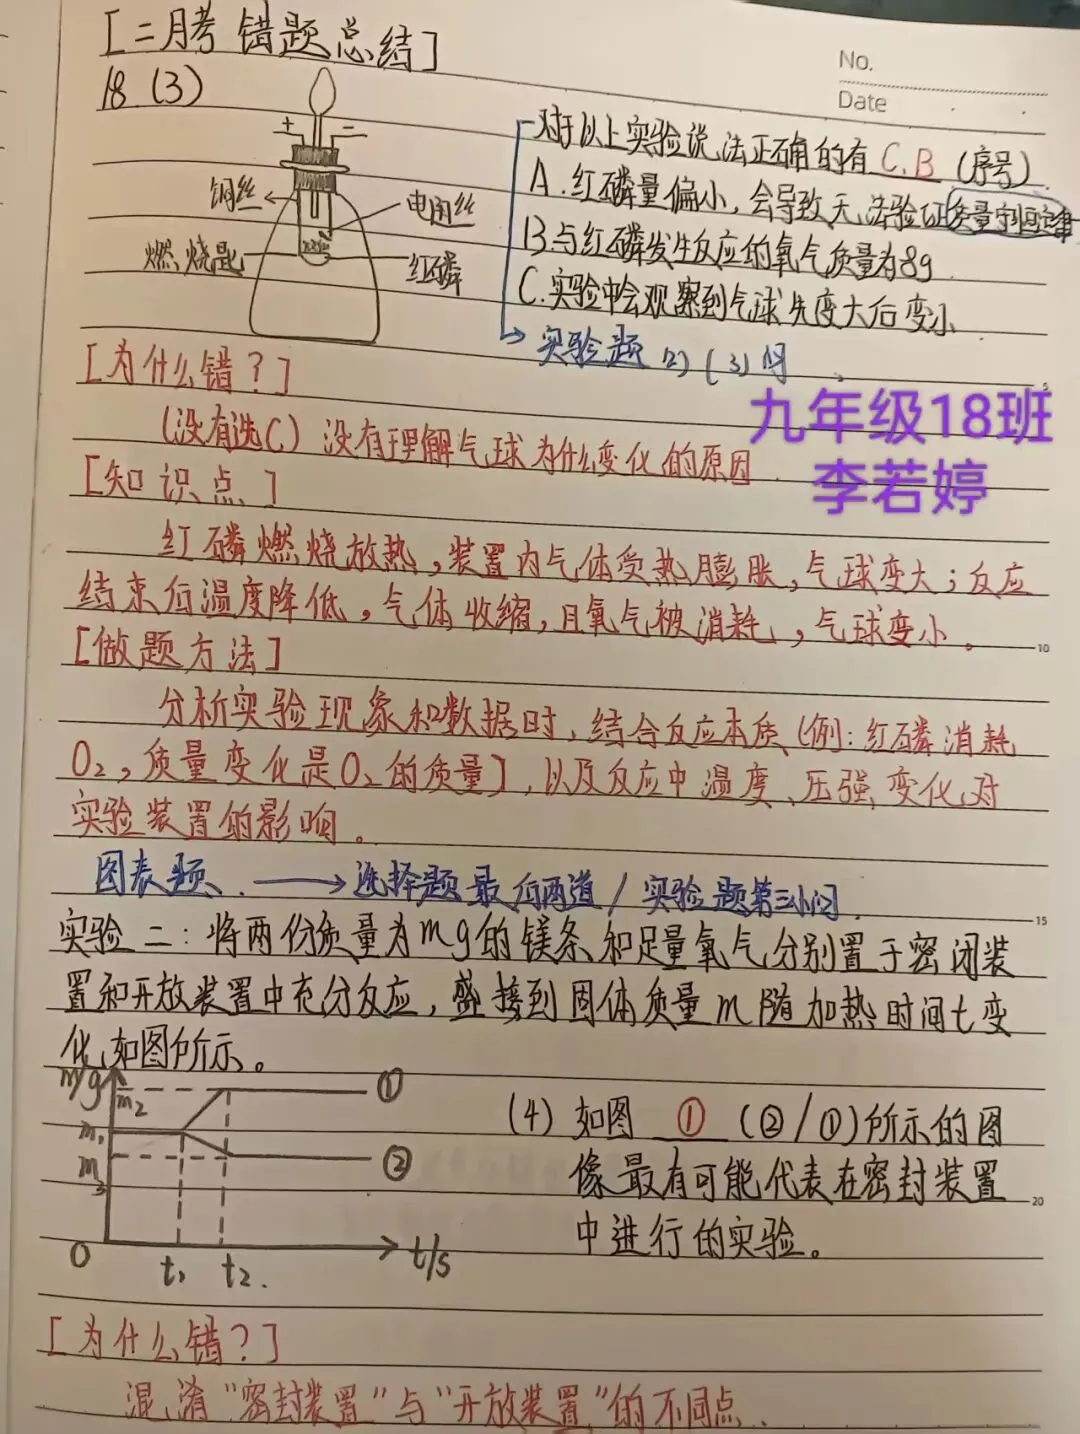 [二月考错题总结]
No.
Date
18 (3)
+ −
铜丝
电阻丝
燃烧匙
红磷
对于以上实验说法正确的有 C,B (序号)
A.红磷量偏小,会导致无法验证质量守恒定律
B.与红磷发生反应的氧气质量为8g
C.实验中会观察到气球先变大后变小
实验题 (2) (3)问
[为什么错?]
(没有选C) 没有理解气球为什么变化的原因
九年级18班
李若婷
[知识点]
红磷燃烧放热,装置内气体受热膨胀,气球变大;反应
结束后温度降低,气体收缩,且氧气被消耗,气球变小。
[做题方法]
分析实验现象和数据时,结合反应本质(例:红磷消耗
O₂,质量变化是O₂的质量),以及反应中温度、压强变化对
实验装置的影响。
图表题、 → 选择题最后两道/实验题第三小问
实验二:将两份质量为mg的镁条和足量氧气分别置于密闭装
置和开放装置中充分反应,接到固体质量m随加热时间t变
化,如图所示。
m/g
m₂
①
m₁
m₃
②
0
t₁ t₂
t/s
(4) 如图 ① (②/①)所示的图
像最有可能代表在密封装置
中进行的实验。
[为什么错?]
混淆"密封装置"与"开放装置"的不同点.
5
10
15
20